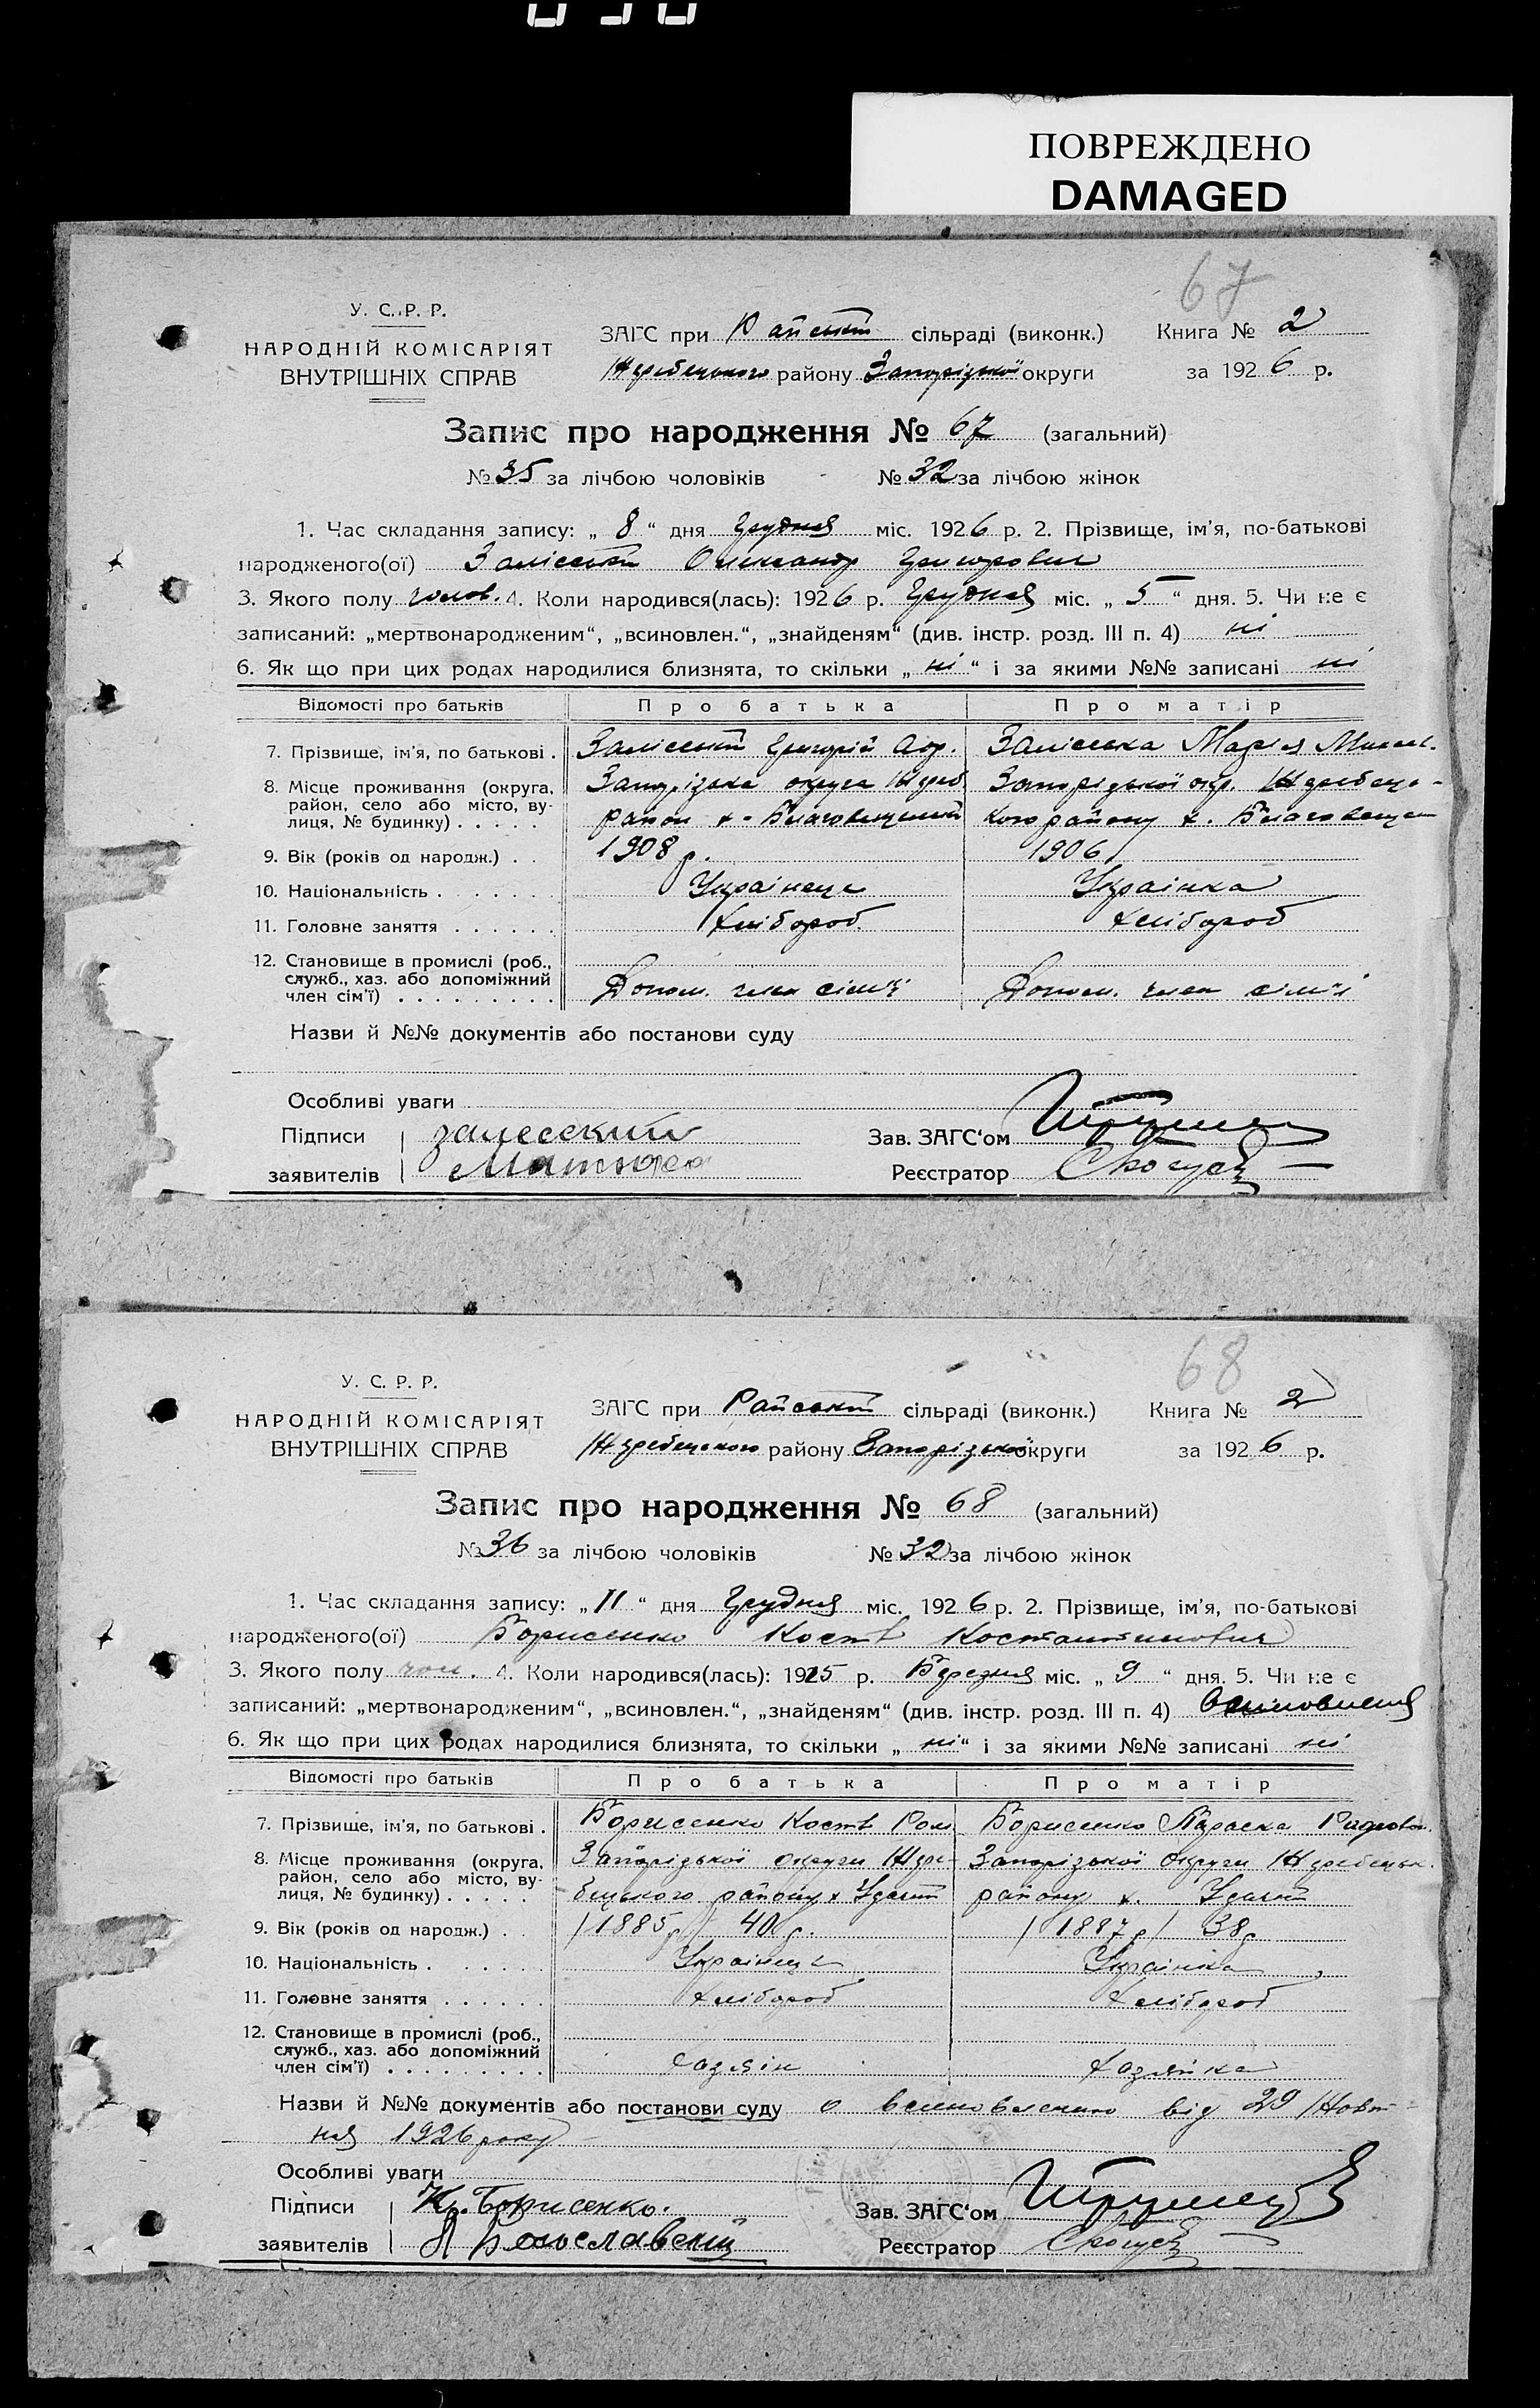 ПОВРЕЖДЕНО
DAMAGED
67
У. С. Р. Р.
НАРОДНІЙ КОМІСАРІЯТ
ВНУТРІШНІХ СПРАВ
ЗАГС при Райській сільраді (виконк.) Книга № 2
Жеребецького району Запорізької округи за 1926 р.
Запис про народження № 67 (загальний)
№ 35 за лічбою чоловіків № 32 за лічбою жінок
1. Час складання запису: „ 8 “ дня Грудня міс. 1926 р. 2. Прізвище, ім'я, по-батькові
народженого(ої) Заліський Олександр Григорович
3. Якого полу чолов. 4. Коли народився(лась): 1926 р. Грудня міс. „ 5 “ дня. 5. Чи не є
записаний: „мертвонародженим“, „всиновлен.“, „знайденям“ (див. інстр. розд. III п. 4) ні
6. Як що при цих родах народилися близнята, то скільки „ ні “ і за якими №№ записані ні
Відомості про батьків Про батька Про матір
7. Прізвище, ім'я, по батькові . Заліський Григорій Заліська Марія
8. Місце проживання (округа, район, село або місто, вулиця, № будинку) . . . . . Запорізька округа Жереб. Запорізької окр. Жеребець-
район х. Благовещений кого району х. Благовещен
9. Вік (років од народж.) . . 1908 р. 1906
10. Національність . . . . . . Українець Українка
11. Головне заняття . . . . . . Хлібороб Хлібороб
12. Становище в промислі (роб.,
служб., хаз. або допоміжний
член сім'ї) . . . . . . . . . Допом. член сім'ї Допом. член сім'ї
Назви й №№ документів або постанови суду
Особливі уваги
Підписи залеский Зав. ЗАГС'ом
заявителів Реєстратор
68
У. С. Р. Р.
НАРОДНІЙ КОМІСАРІЯТ
ВНУТРІШНІХ СПРАВ
ЗАГС при Райській сільраді (виконк.) Книга № 2
Жеребецького району Запорізької округи за 1926 р.
Запис про народження № 68 (загальний)
№ 36 за лічбою чоловіків № 32 за лічбою жінок
1. Час складання запису: „ 11 “ дня Грудня міс. 1926 р. 2. Прізвище, ім'я, по-батькові
народженого(ої) Борисенко Кость Костантинович
3. Якого полу чол. 4. Коли народився(лась): 1915 р. Березня міс. „ 9 “ дня. 5. Чи не є
записаний: „мертвонародженим“, „всиновлен.“, „знайденям“ (див. інстр. розд. III п. 4)
6. Як що при цих родах народилися близнята, то скільки „ ні “ і за якими №№ записані ні
Відомості про батьків Про батька Про матір
7. Прізвище, ім'я, по батькові . Борисенко Кость Ром Борисенко Параска
8. Місце проживання (округа, район, село або місто, вулиця, № будинку) . . . . . Запорізької округи Жере- Запорізької округи Жеребецьк.
бецького району х. Удачний району х. Удачний
9. Вік (років од народж.) . . /1885 р/ 40 р. /1887 р/ 38 р
10. Національність . . . . . . Українець Українка
11. Головне заняття . . . . . . Хлібороб Хлібороб
12. Становище в промислі (роб.,
служб., хаз. або допоміжний
член сім'ї) . . . . . . . . . Хазяїн Хазяйка
Назви й №№ документів або постанови суду о всиновленню від 29 /Жовт-
ня 1926 року
Особливі уваги
Підписи К. Борисенко. Зав. ЗАГС'ом
заявителів Реєстратор